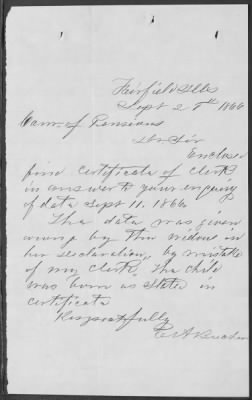 Fairfield Ills
Sept 2 1866
Com. of Pensions
Dr Sir
Enclosed
find certificate of clerk
in answer to your inquiry
of date Sept 11. 1866
The date was given
wrong by the widow in
her declaration, by mistake
of my clerk, The child
was born as stated in
certificate
Respectfully
C A Beecher